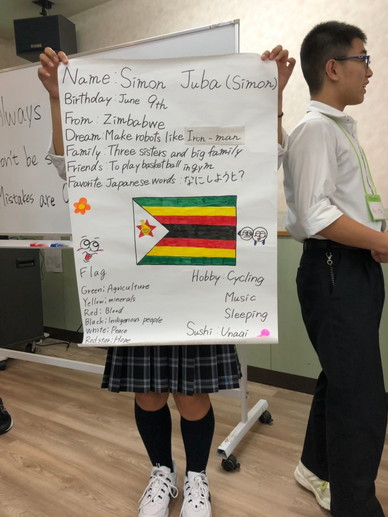 Name: Simon Juba (Simon)
Birthday: June 9th
From: Zimbabwe
Dream: Make robots like Iron-man
Family: Three sisters and big family
Friends: To play basketball in gym
Favorite Japanese words: なにしようと?
Flag
Green: Agriculture
Yellow: minerals
Red: Blood
Black: Indigenous people
White: Peace
Red star: Hope
Hobby: Cycling
Music
Sleeping
Sushi Unagi
Always
on't be
Mistakes are